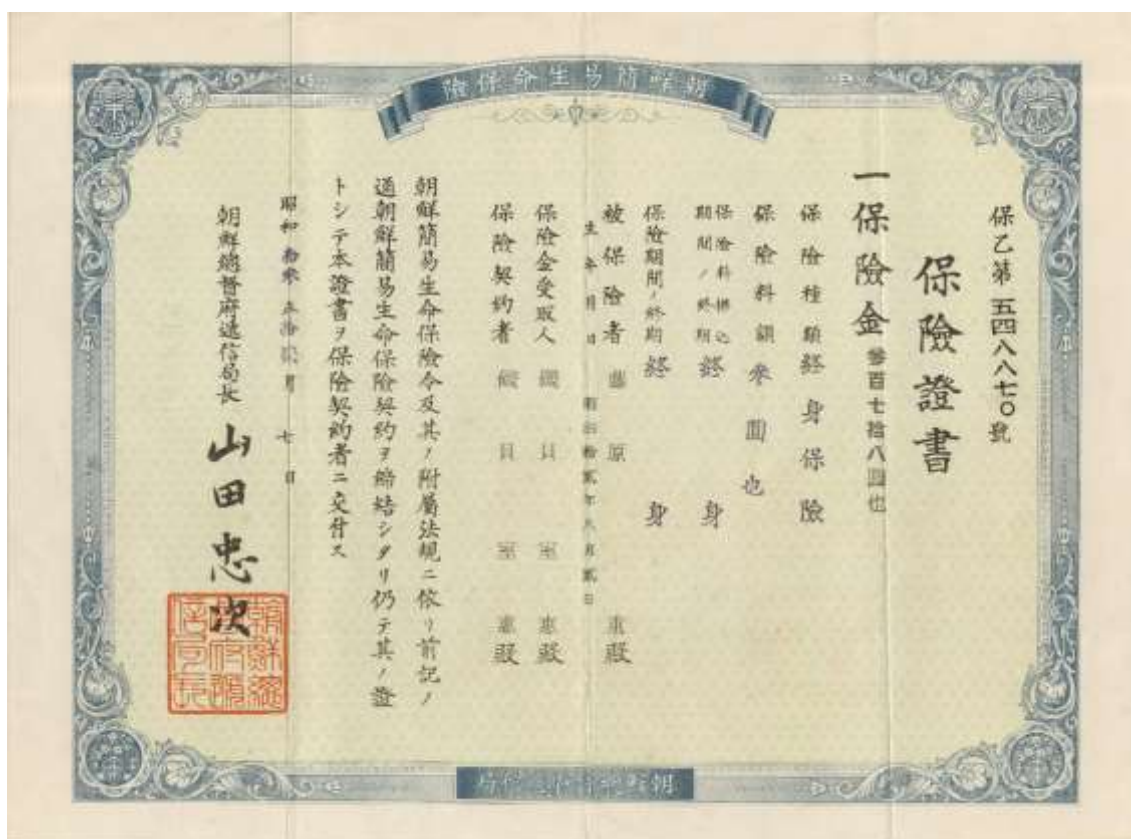 朝鮮簡易生命保險
保乙第五四八八七〇號
保險證書
一保險金參百七拾八圓也
保險種類終身保險
保險料額參圓也
保險料拂込期間ノ終期終身
保險期間ノ終期終身
被保險者藤原重殿
生年月日
保險金受取人磯貝室惠殿
保險契約者磯貝室惠殿
朝鮮簡易生命保險令及其ノ附屬法規ニ依リ前記ノ
通朝鮮簡易生命保險契約ヲ締結シタリ仍テ其ノ證
トシテ本證書ヲ保險契約者ニ交付ス
昭和拾參年拾貳月七日
朝鮮總督府遞信局長 山田忠次